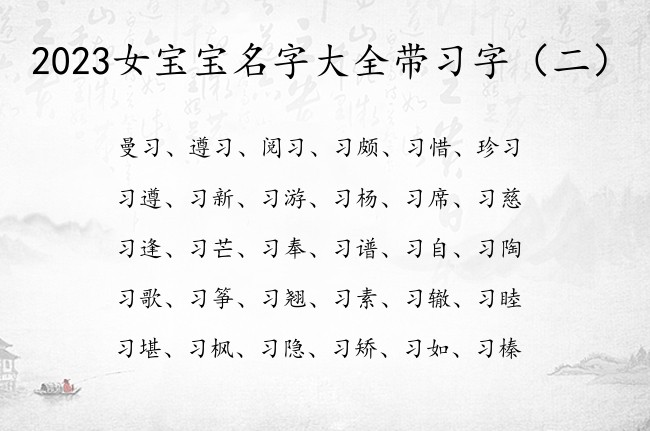 2023女宝宝名字大全带习字（二）
曼习、遵习、阅习、习颇、习惜、珍习
习遵、习新、习游、习杨、习席、习慈
习逢、习芒、习奉、习谱、习自、习陶
习歌、习筝、习翘、习素、习辙、习睦
习堪、习枫、习隐、习矫、习如、习榛